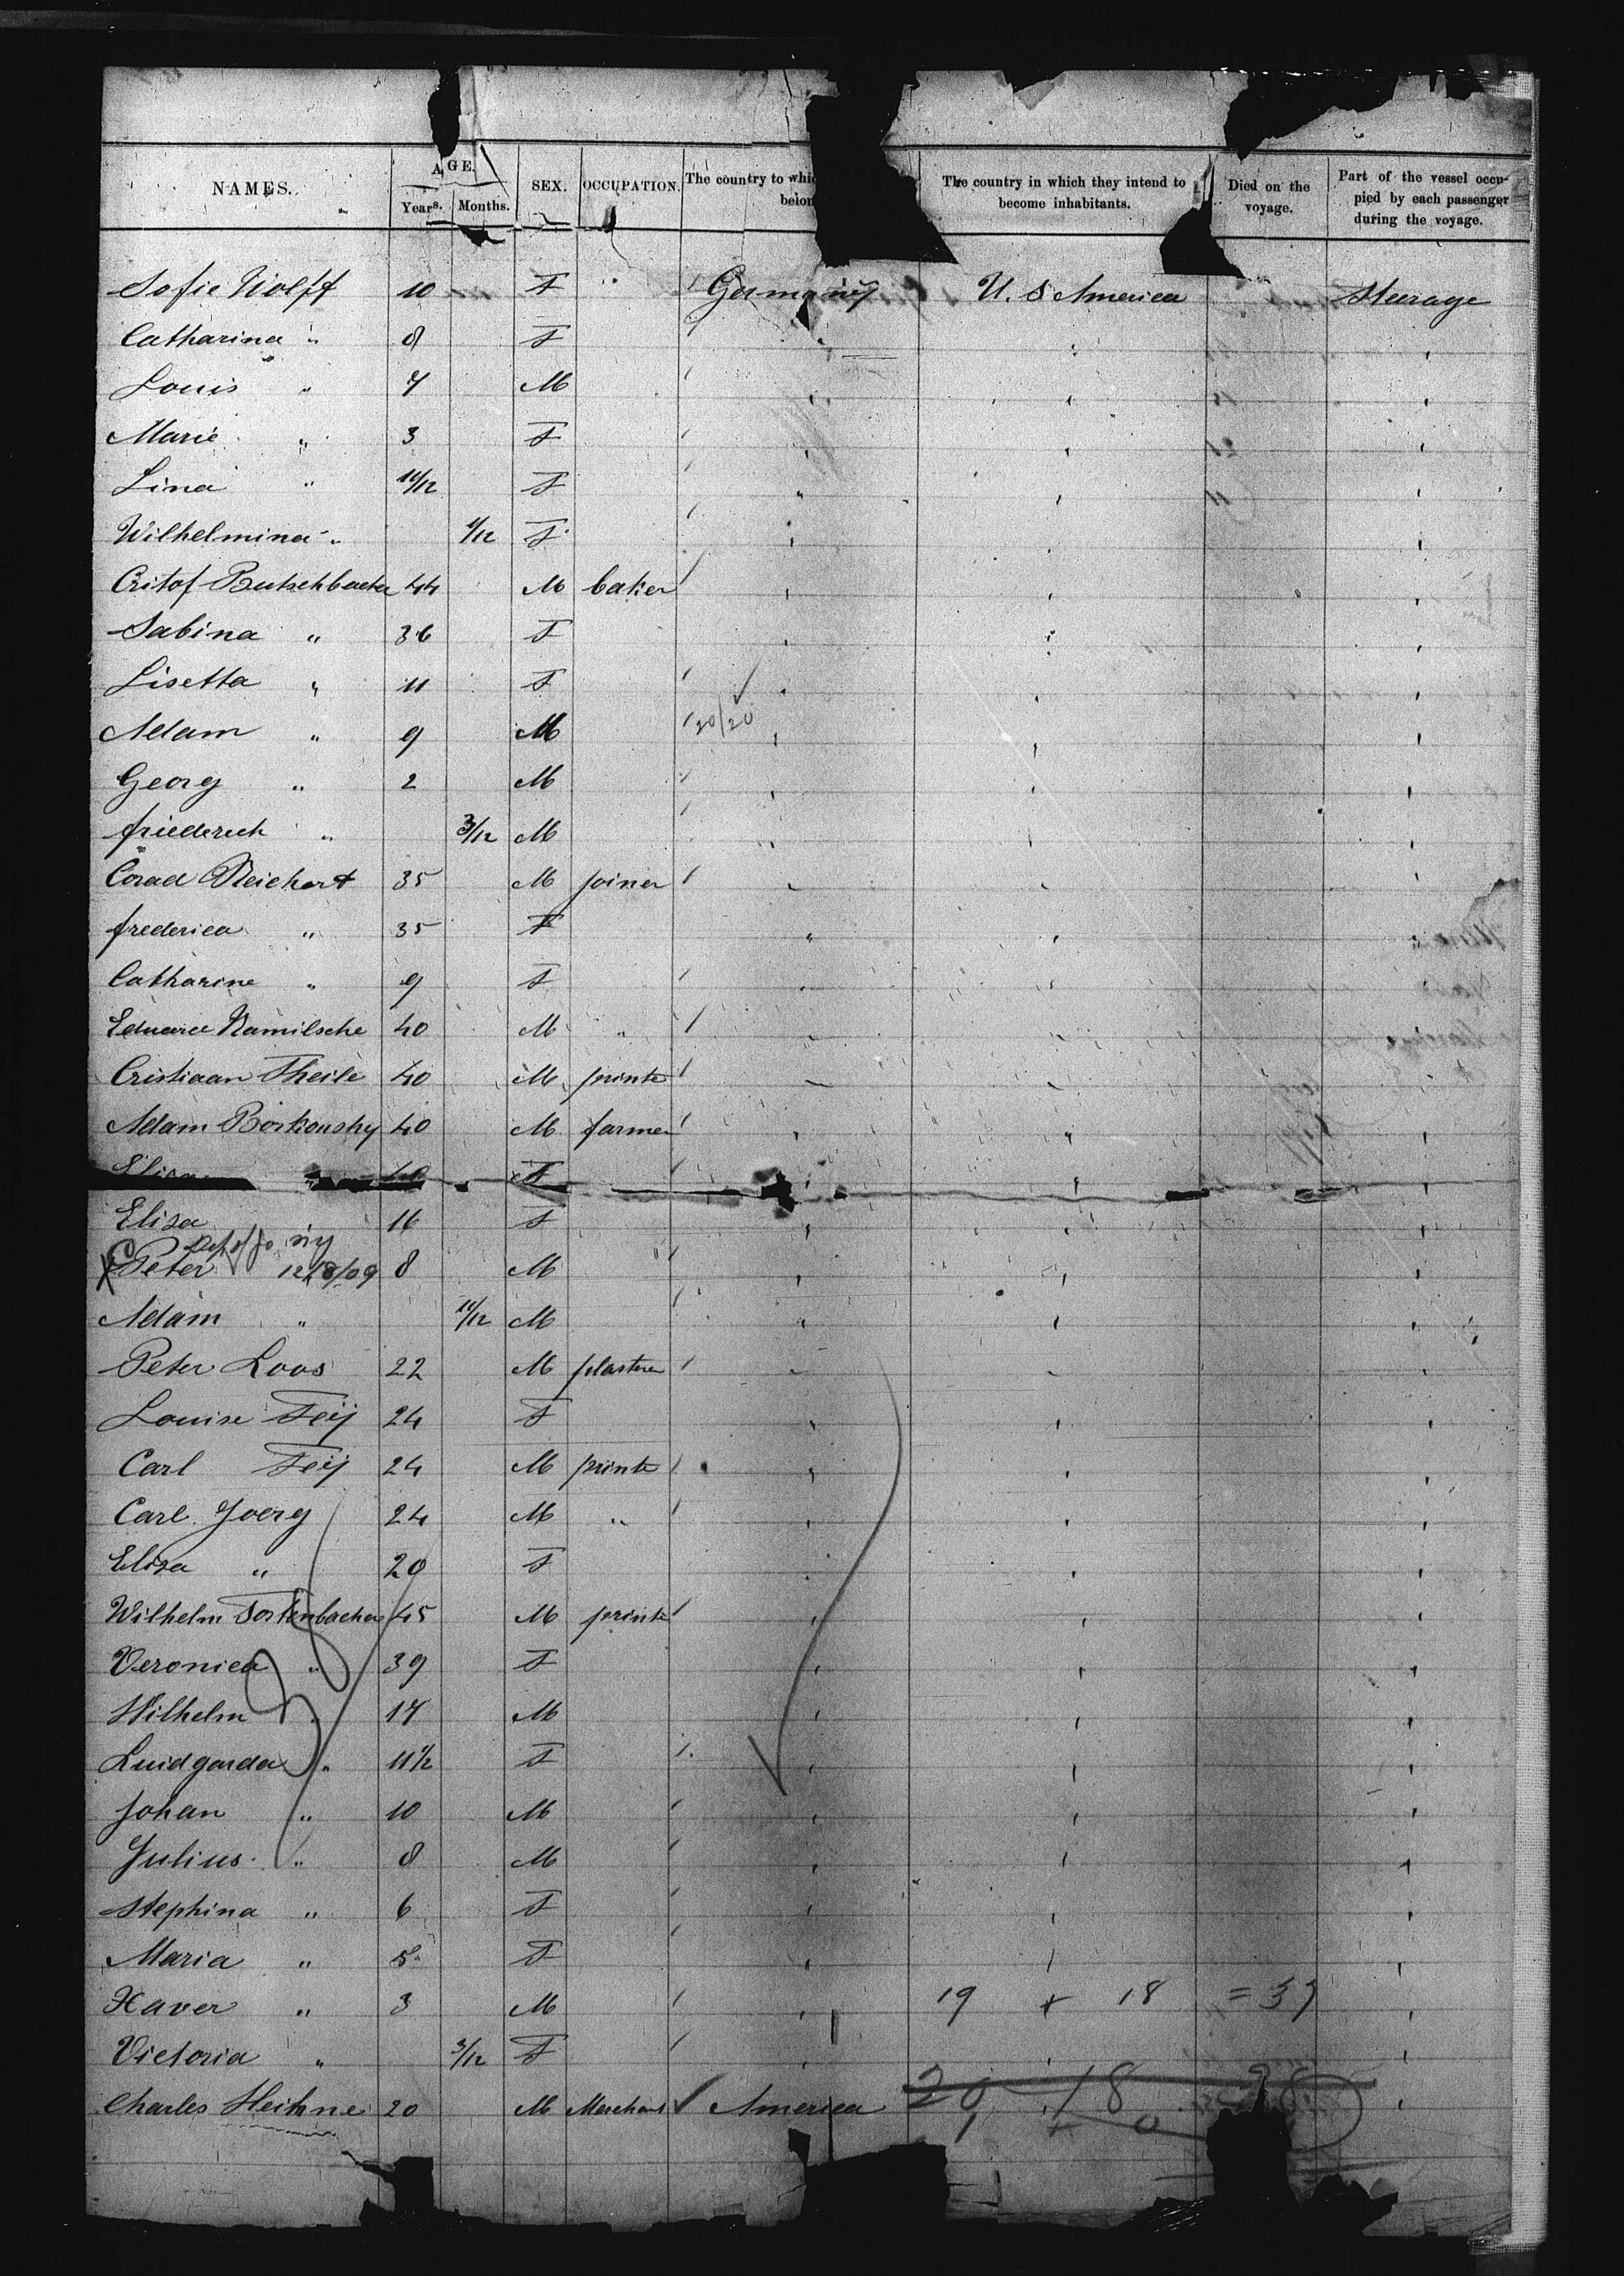 NAMES. AGE. SEX. OCCUPATION. The country to whi belon The country in which they intend to become inhabitants. Died on the voyage. Part of the vessel occu-pied by each passenger during the voyage.
Years. Months.
Sofie Wolff 10 F Germany U. S America Steerage
Catharina " 8 F
Louis " 7 M
Marie " 3 F
Lina " 11/12 F
Wilhelmina " 1/12 F
Cristof Butschbacher 44 M baker
Sabina " 36 F
Lisetta " 11 F
Adam " 9 M 20/20
Georg " 2 M
friederich " 3/12 M
Corad Reichert 35 M joiner
frederica " 35 F
Catharine " 9 F
Eduard 40 M "
Cristiaan Theile 40 M printe
Adam Borkousky 40 M farmer
Elisa 40 F
Elisa 16 F
Peter 12/8/09 8 M
Adam " 11/12 M
Peter Loos 22 M plasterer
Louise Feij 24 F
Carl Feij 24 M printe
Carl Joerg 24 M "
Elisa " 20 F
Wilhelm Tortenbacher 45 M printe
Veronica " 39 F
Wilhelm " 17 M
Luidgarda " 11 1/2 F
Johan " 10 M
Julius " 8 M
Stephina " 6 F
Maria " 5 F
Xaver " 3 M 19 + 18 = 37
Victoria " 3/12 F
Charles Heihne 20 M Merchant America 20 18 38
1 + 0